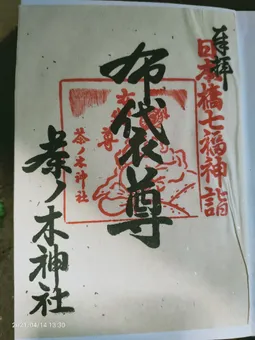 奉拝
日本橋七福神詣
布袋尊
茶ノ木神社
茶ノ木神社
2021/04/14 13:30